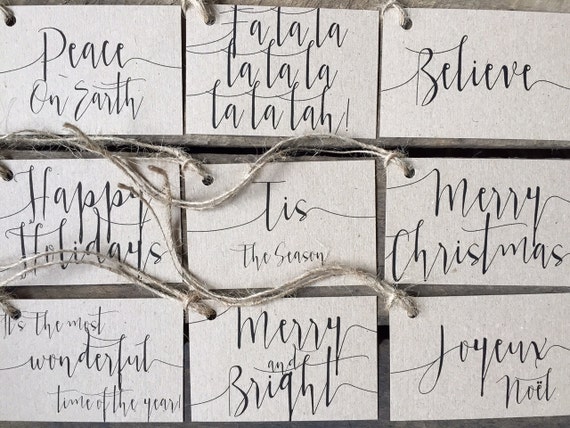 Peace
On Earth
Fa la la
la la la
la la lah!
Believe
Happy
Holidays
Tis
The Season
Merry
Christmas
It's the most
wonderful
time of the year!
Merry
and
Bright
Joyeux
Noël